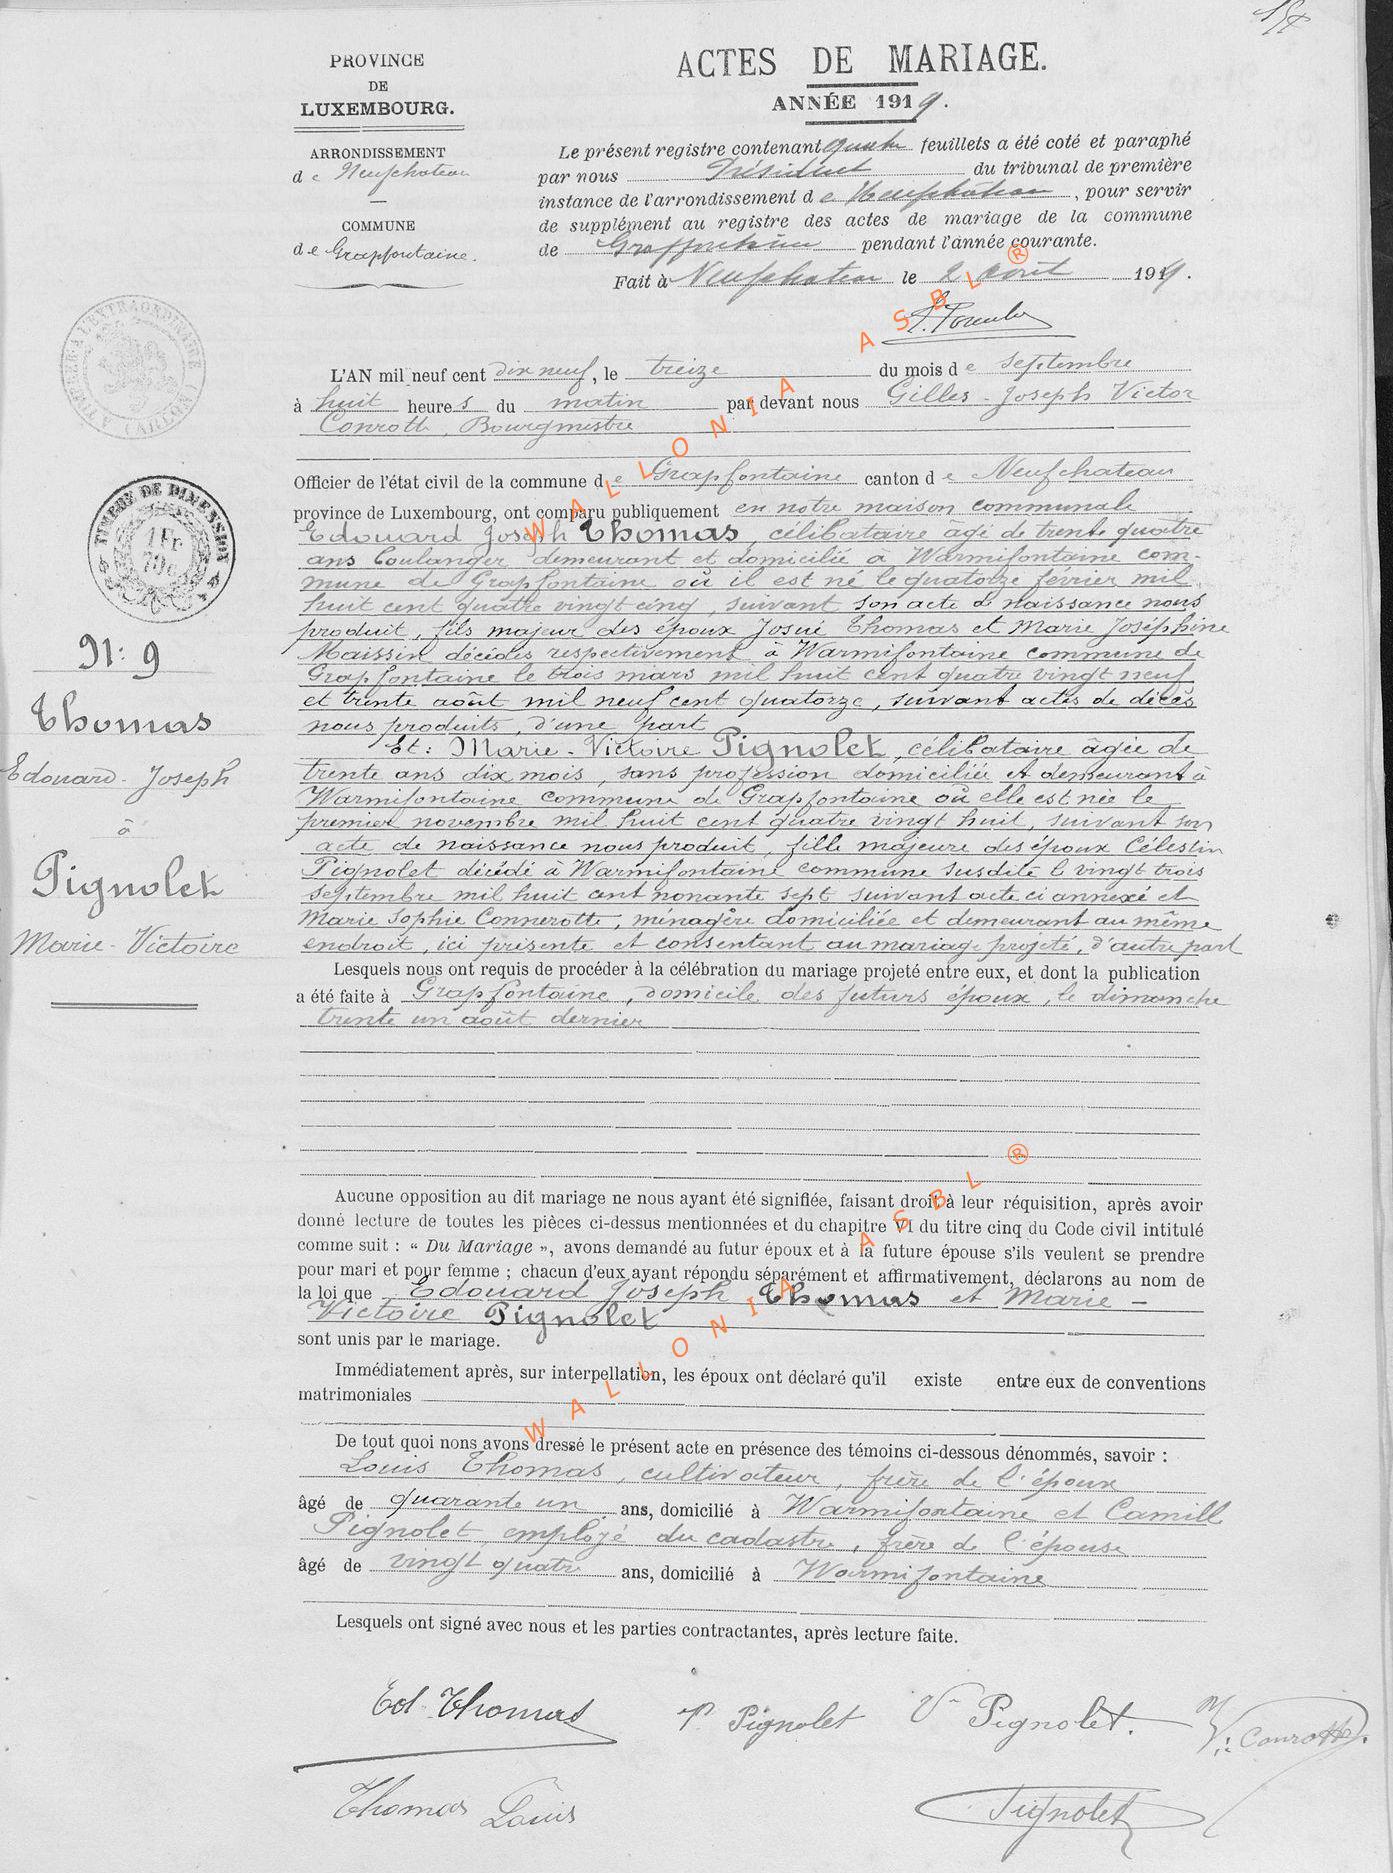 PROVINCE
DE
LUXEMBOURG.
ARRONDISSEMENT
de Neufchateau
COMMUNE
de Grapfontaine.
ACTES DE MARIAGE.
ANNÉE 1919.
Le présent registre contenant quatre feuillets a été coté et paraphé
par nous Président du tribunal de première
instance de l'arrondissement de Neufchateau, pour servir
de supplément au registre des actes de mariage de la commune
de Grapfontaine pendant l'année courante.
Fait à Neufchateau le 2 août 1919.
L'AN mil neuf cent dix neuf, le treize du mois de septembre
à huit heures du matin par devant nous Gilles-Joseph Victor
Conrotte, Bourgmestre
Officier de l'état civil de la commune de Grapfontaine canton de Neufchateau
province de Luxembourg, ont comparu publiquement en notre maison communale
Edouard Joseph Thomas, célibataire âgé de trente quatre
ans boulanger demeurant et domicilié à Warmifontaine com-
mune de Grapfontaine où il est né le quatorze février mil
huit cent quatre vingt cinq, suivant son acte de naissance nous
produit, fils majeur des époux Josué Thomas et Marie Joséphine
Maissin décédés respectivement à Warmifontaine commune de
Grapfontaine le trois mars mil huit cent quatre vingt neuf
et trente août mil neuf cent quatorze, suivant actes de décès
nous produits, d'une part
Et: Marie-Victoire Pignolet, célibataire âgée de
trente ans dix mois, sans profession domiciliée et demeurant à
Warmifontaine commune de Grapfontaine où elle est née le
premier novembre mil huit cent quatre vingt huit, suivant son
acte de naissance nous produit, fille majeure des époux Célestin
Pignolet décédé à Warmifontaine commune susdite le vingt trois
septembre mil huit cent nonante sept suivant acte ci annexé et
Marie Sophie Connerotte, ménagère domiciliée et demeurant au même
endroit, ici présente et consentant au mariage projeté, d'autre part
Lesquels nous ont requis de procéder à la célébration du mariage projeté entre eux, et dont la publication
a été faite à Grapfontaine, domicile des futurs époux, le dimanche
trente un août dernier
Aucune opposition au dit mariage ne nous ayant été signifiée, faisant droit à leur réquisition, après avoir
donné lecture de toutes les pièces ci-dessus mentionnées et du chapitre VI du titre cinq du Code civil intitulé
comme suit : « Du Mariage », avons demandé au futur époux et à la future épouse s'ils veulent se prendre
pour mari et pour femme ; chacun d'eux ayant répondu séparément et affirmativement, déclarons au nom de
la loi que Edouard Joseph Thomas et Marie-
Victoire Pignolet
sont unis par le mariage.
Immédiatement après, sur interpellation, les époux ont déclaré qu'il existe entre eux de conventions
matrimoniales
De tout quoi nons avons dressé le présent acte en présence des témoins ci-dessous dénommés, savoir :
Louis Thomas, cultivateur, frère de l'époux
âgé de quarante un ans, domicilié à Warmifontaine et Camill
Pignolet employé du cadastre, frère de l'épouse
âgé de vingt quatre ans, domicilié à Warmifontaine
Lesquels ont signé avec nous et les parties contractantes, après lecture faite.
Ed Thomas
Pignolet
Vre Pignolet.
Thomas Louis
Pignolet
TIMBRE DE DIMENSION
1 Fr
N: 9
Thomas
Edouard-Joseph
à
Pignolet
Marie-Victoire
WALLONIA ASBL ®
WALLONIA ASBL ®